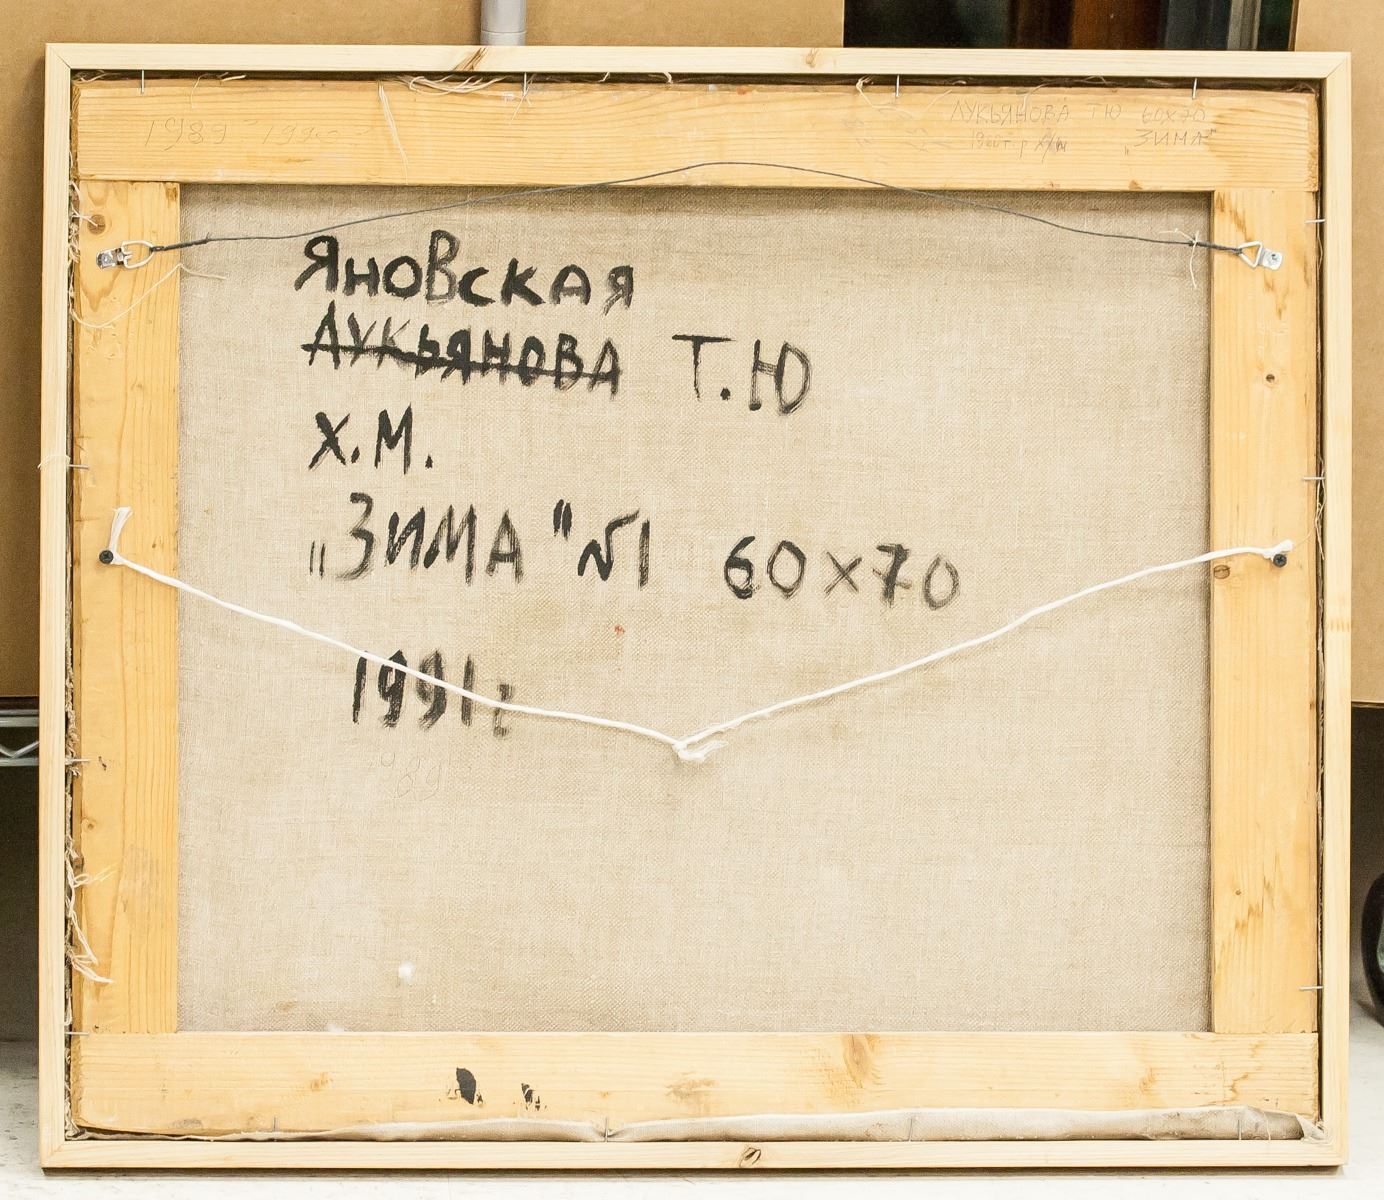 1989 - 1990
ЛУКЬЯНОВА Т Ю 60х70
1960 г.р х/м „ЗИМА"
Яновская
Лукьянова Т.Ю
Х.М.
„ЗИМА" №1 60х70
1991г
89